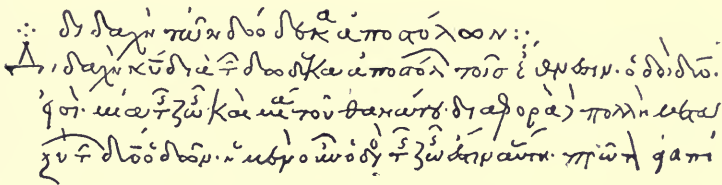 διδαχὴ τῶν δώδεκα ἀποστόλων:·
Διδαχὴ κῡ διὰ τῶν δώδεκα ἀποστόλων τοῖς ἔθνεσιν· ὁδοὶ δύο
εἰσί· μία τῆς ζωῆς καὶ μία τοῦ θανάτου· διαφορὰ δὲ πολλὴ μετα
ξὺ τῶν δύο ὁδῶν· ἡ μὲν οὖν ὁδὸς τῆς ζωῆς ἐστιν αὕτη· πρῶτον ἀγαπή